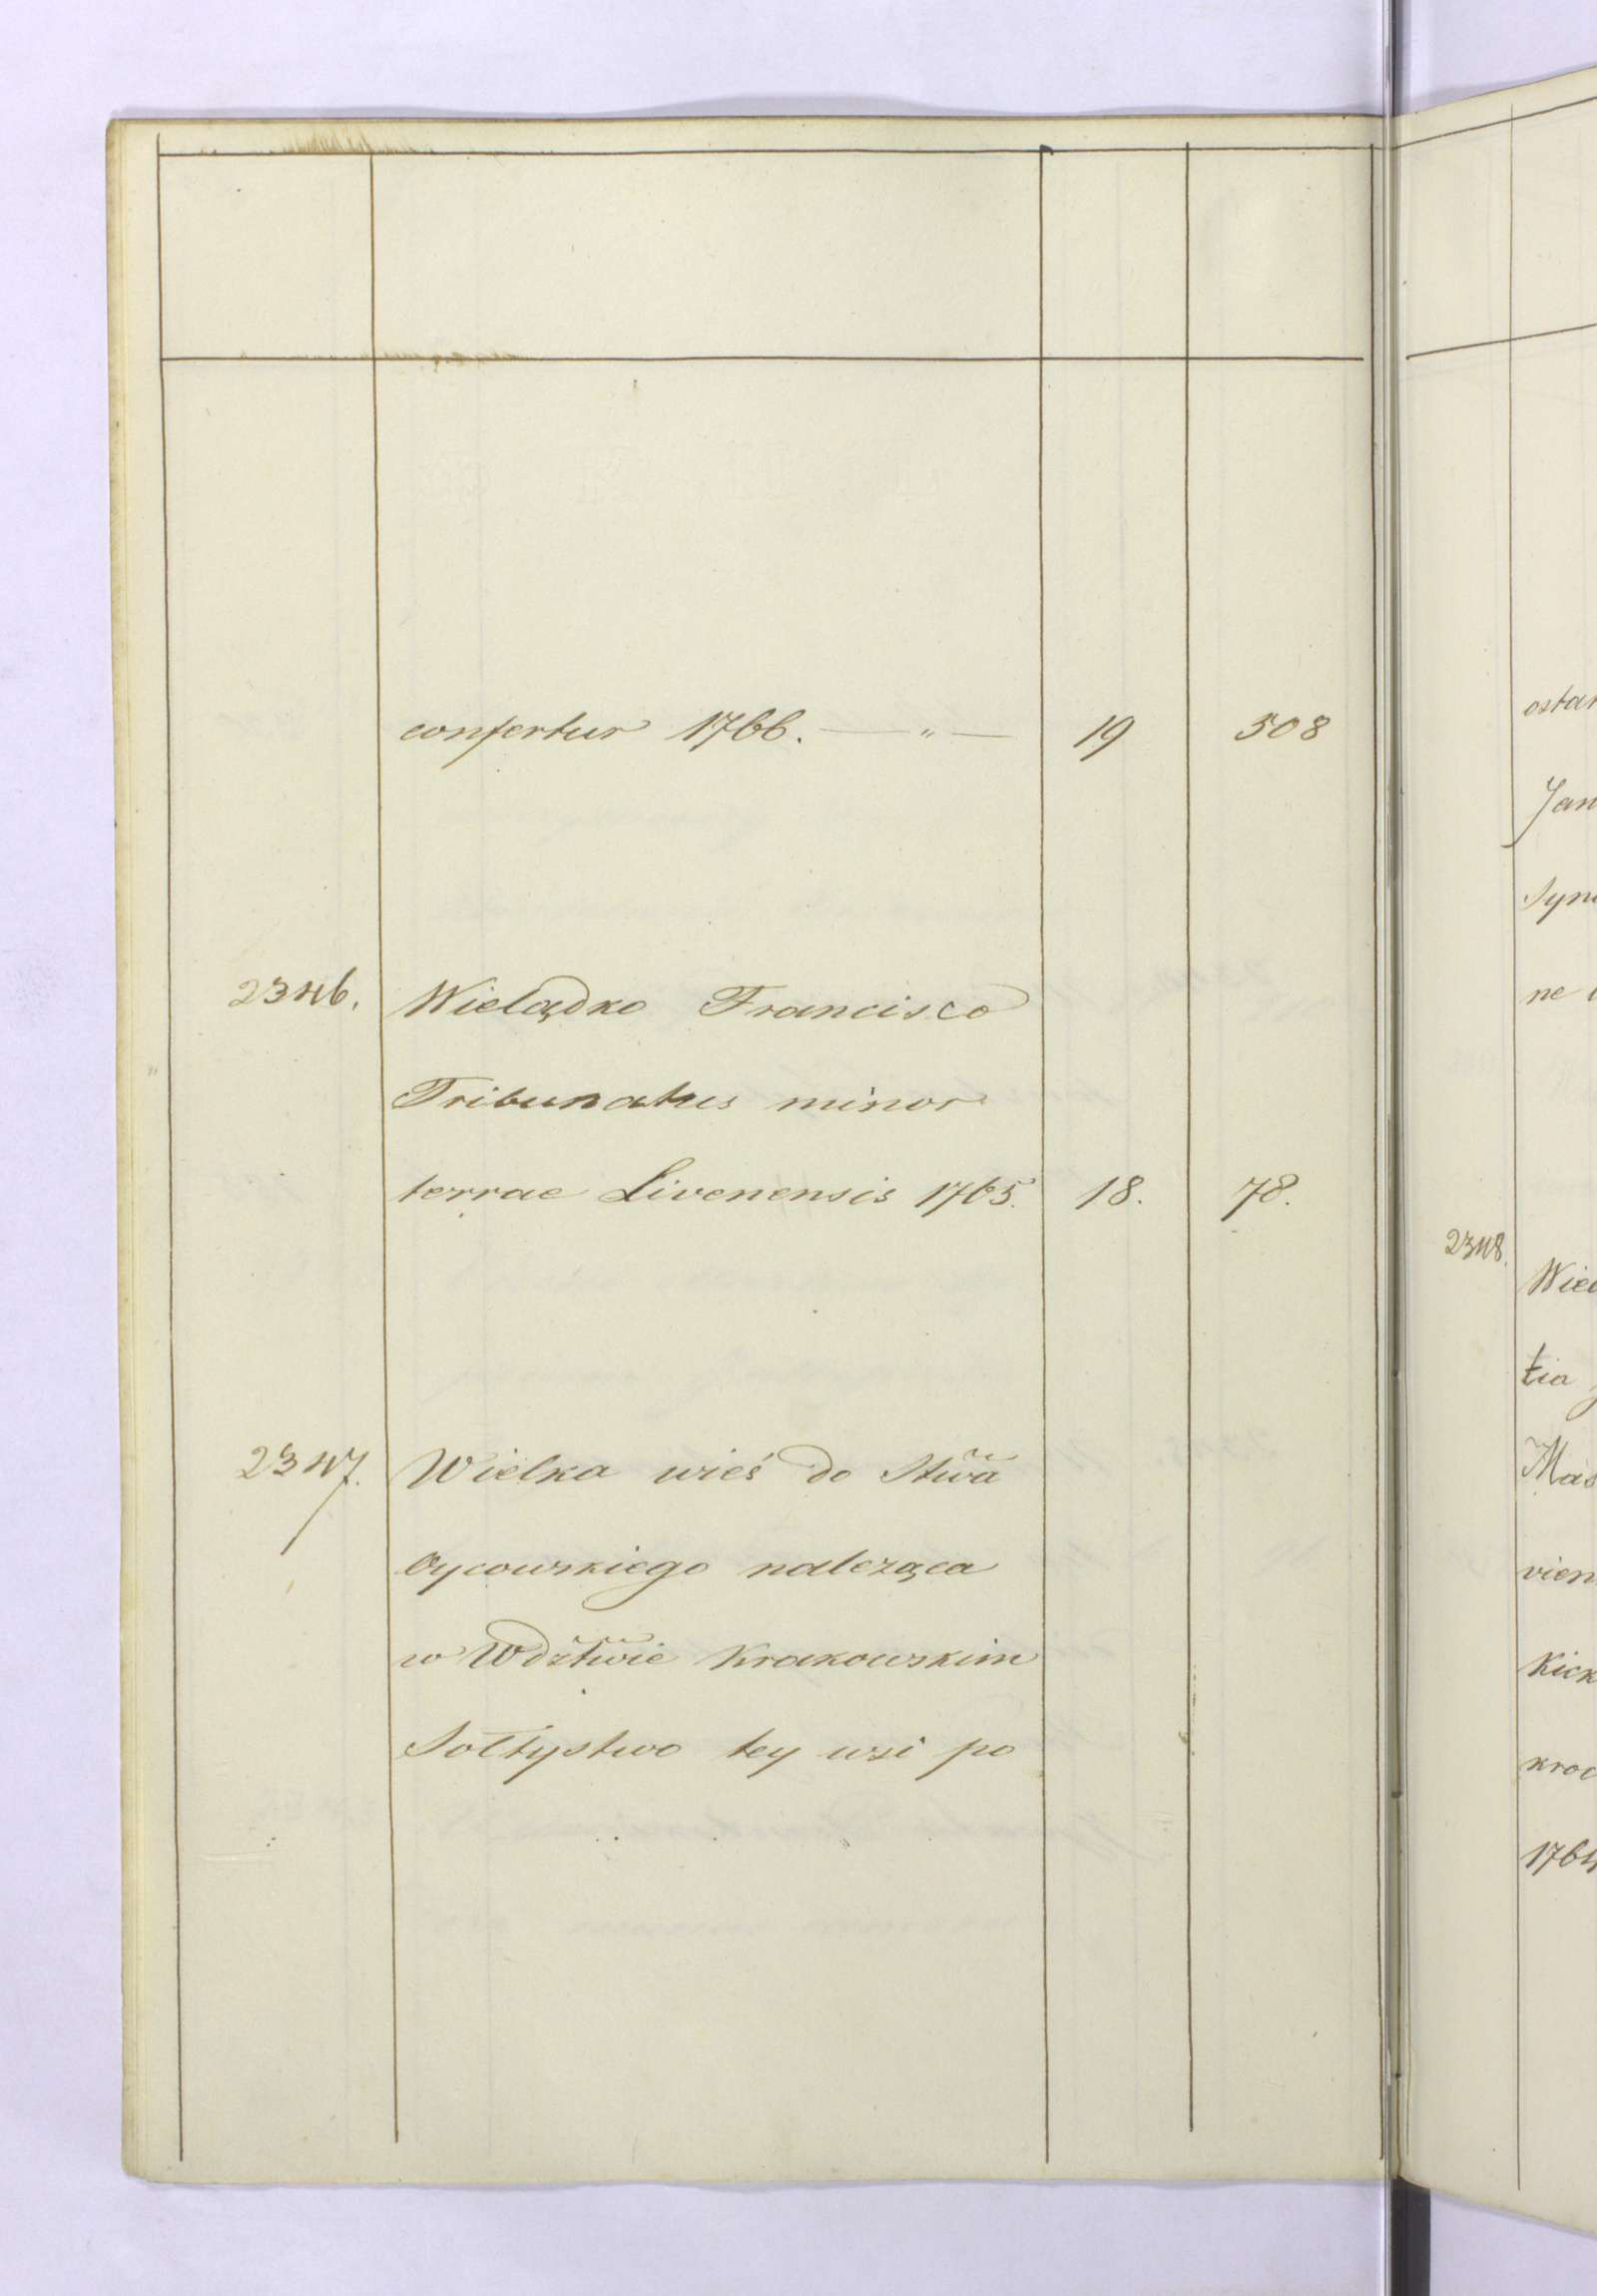 confertur 1766. — „ — 19 508
2346. Wielądko Francisco
Tribunatus minor
terrae Livenensis 1765. 18. 78.
2347. Wielka wieś do Stwa
Oycowskiego należąca
w Wdztwie Krakowskim
Sołtystwo tey wsi po
ostat
Jan
Syn
ne
2348.
Wiel
tia
Mas
vien
Kick
kroc
1764